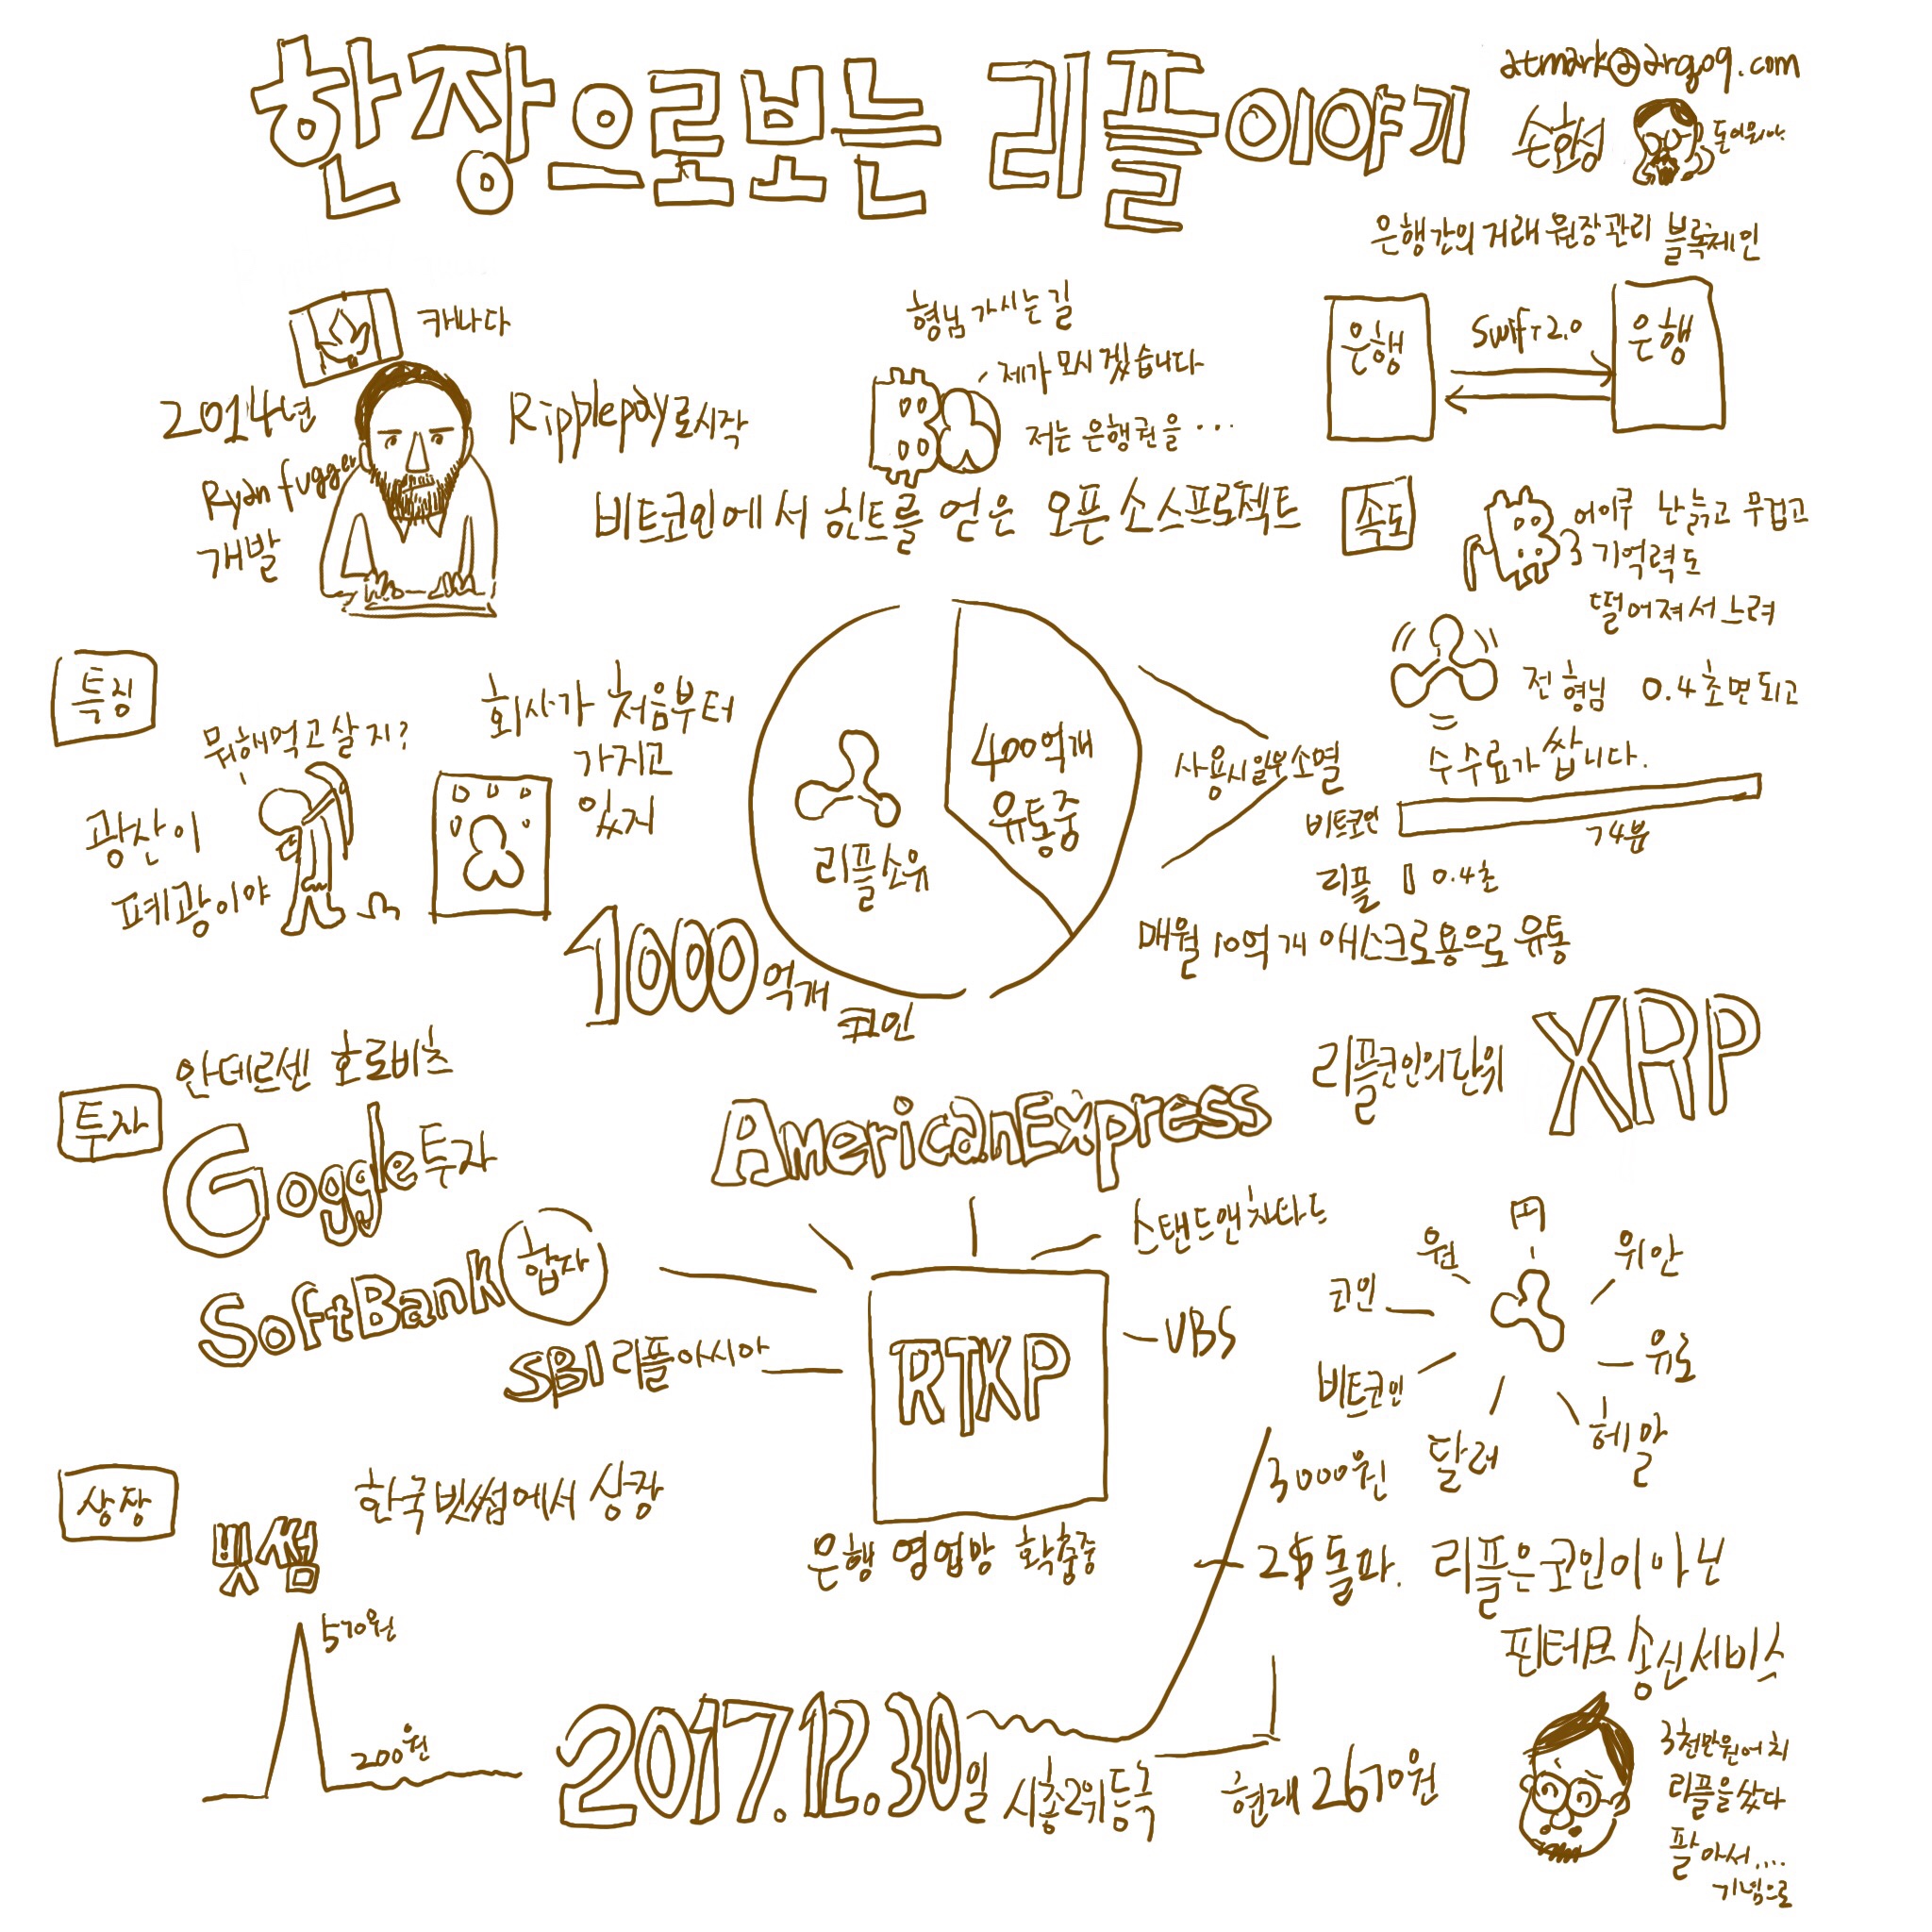 한장으로보는 리플이야기
atmark@argoq.com
손화성
돋이읽아
은행간의 거래 원장관리 블록체인
은행
Swift 2.0
은행
캐나다
2014년
Ripplepay로시작
Ryan fugger
개발
형님 가시는 길
제가 모시겠습니다
저는 은행권을...
비트코인에서 힌트를 얻은 오픈소스프로젝트
속도
어이쿠 난늙고 무겁고
기억력도
떨어져서 느려
전 형님 0.4초면되고
수수료가 쌉니다.
비트코인
74분
리플 0.4초
특징
뭐해먹고 살지?
광산이
폐광이야
회사가 처음부터
가지고
있지
리플소유
400억개
유통중
사용시일부소멸
1000억개
코인
매월 10억개 에스크로용으로 유통
리플코인의단위 XRP
투자
안데르센 호로비츠
Goggle투자
SoftBank 합자
SBI 리플아시아
AmericanExpress
스탠드앤차타드
UBS
RTKP
은행 영업망 확충중
원
위안
코인
유로
비트코인
달러
상장
한국빗썸에서 상장
빗썸
570원
200원
2017.12.30일 시총2위등극
3000원
2$돌파.
현재 2670원
리플은코인이아닌
핀터크 송신서비스
3천만원어치
리플을샀다
팔아서....
기념으로